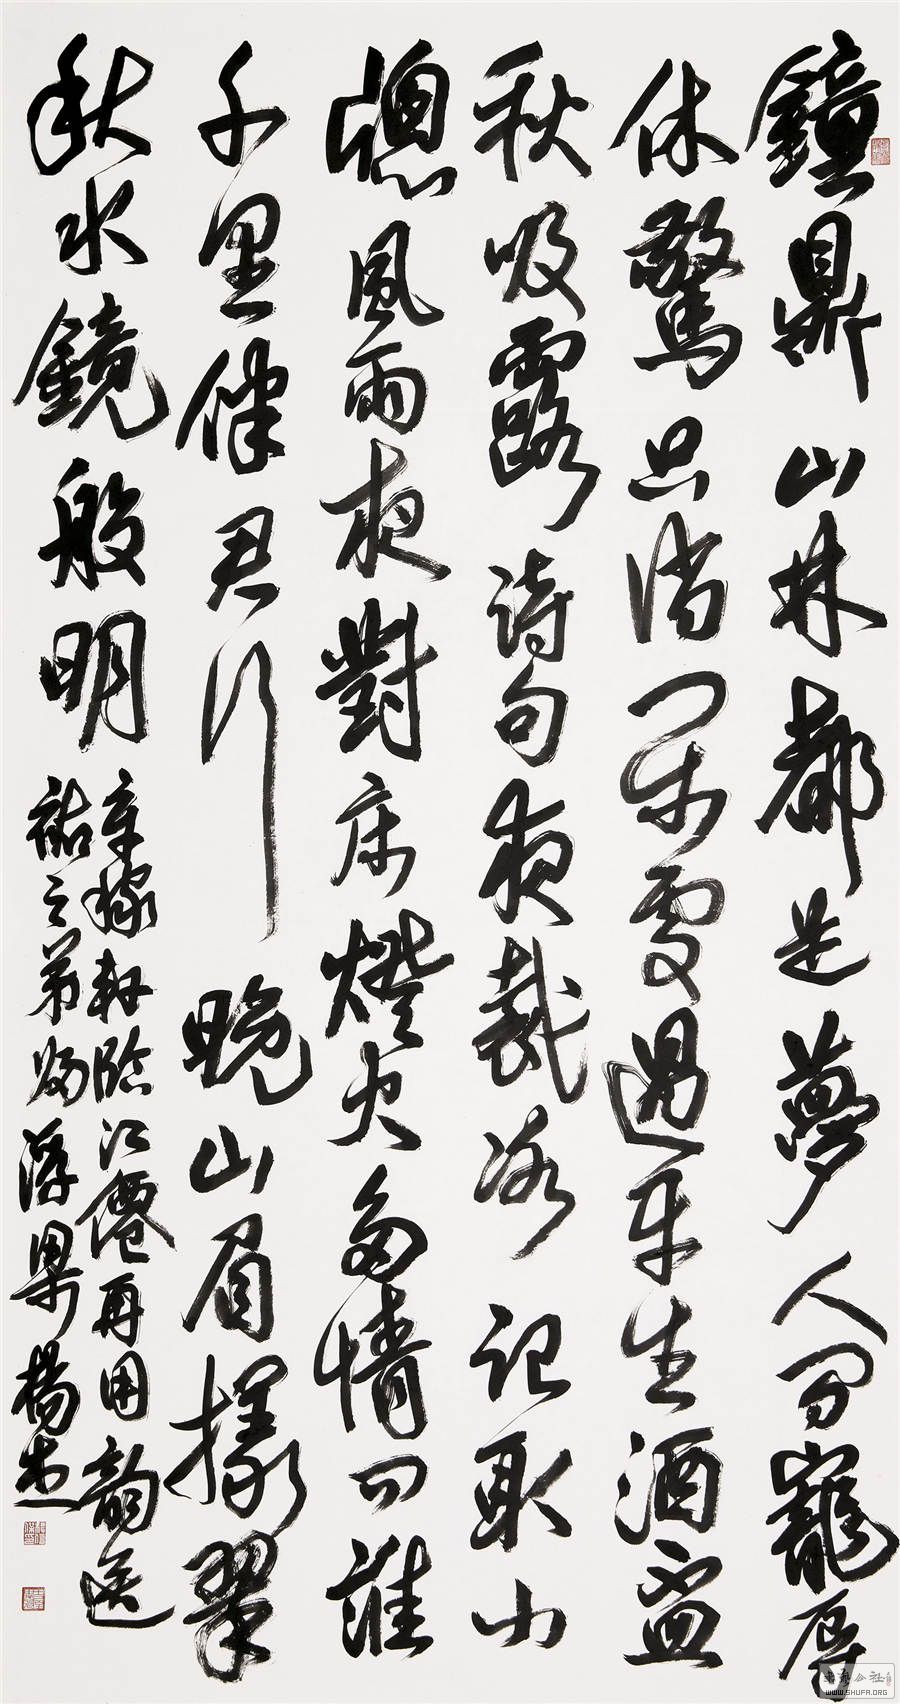 鐘鼎山林都是夢人間寵辱
休驚只消閒處過平生酒盃
秋吸露詩句夜裁冰記取小
牕風雨夜對床燈火多情問誰
千里伴君行晚山眉樣翠
秋水鏡般明
辛稼軒臨江僊再用韻送
祐之弟歸浮梁楊
WWW.SHUFA.ORG